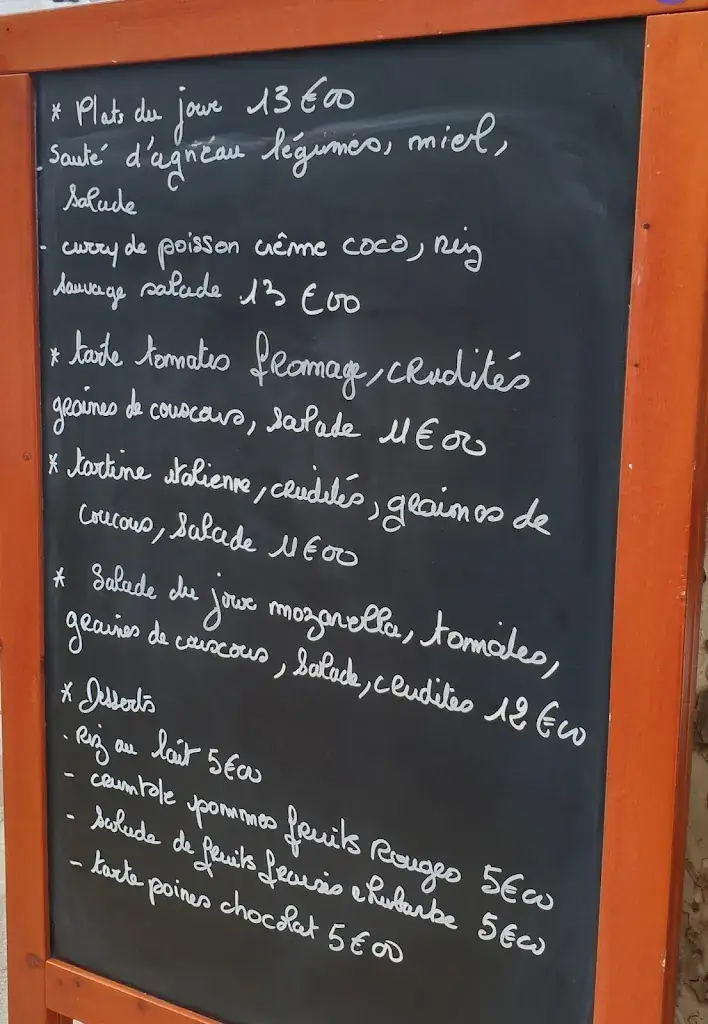 * Plats du jour 13€00
- Sauté d'agneau légumes, miel,
salade
- curry de poisson crême coco, riz
sauvage salade 13€00
* tarte tomates fromage, crudités
graines de couscous, salade 11€00
* tartine italienne, crudités, graines de
coucous, salade 11€00
* Salade du jour mozarella, tomates,
graines de couscous, salade, crudites 12€00
* Desserts
- Riz au lait 5€00
- crumble pommes fruits Rouges 5€00
- Salade de fruits fraises rhubarbe 5€00
- tarte poires chocolat 5€00